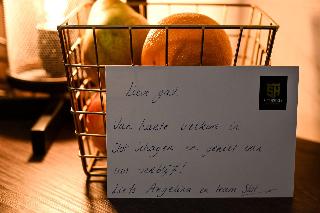 Lieve gast
Van harte welkom in
Slot Schagen en geniet van
uw verblijf!
Liefs Angelina en team Slot